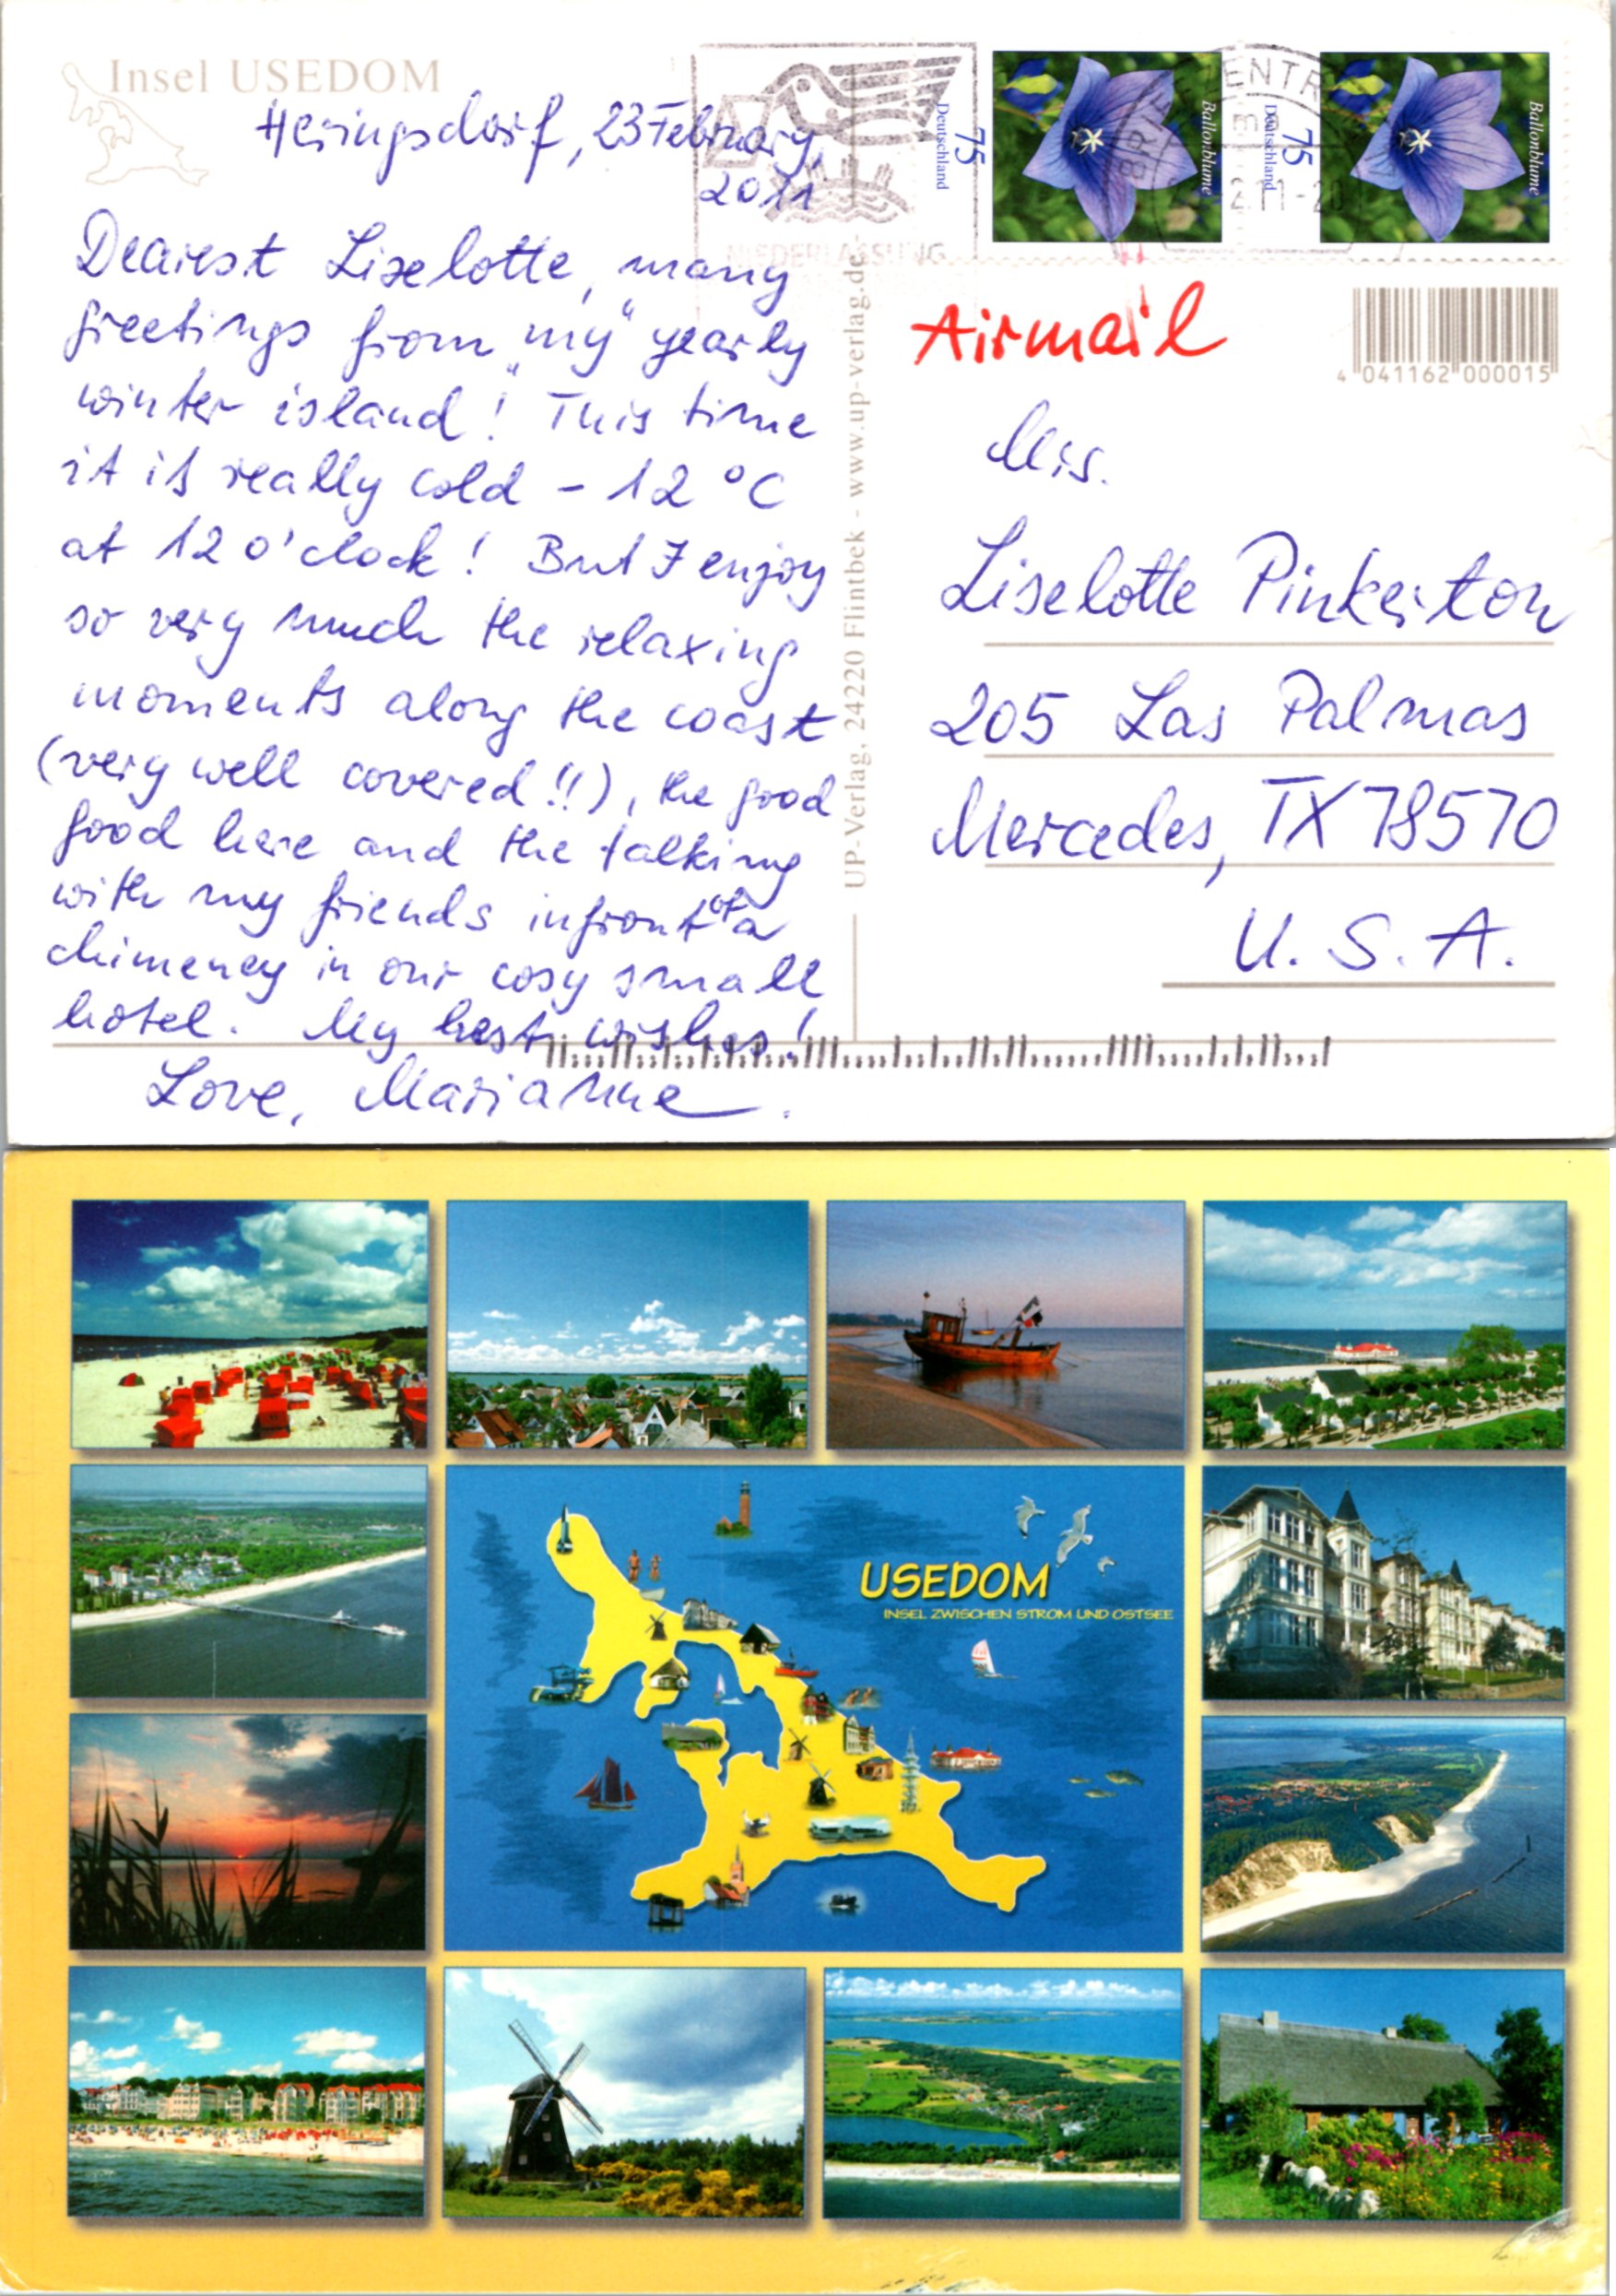 Insel USEDOM
Heringsdorf, 23 February,
2011
Dearest Liselotte, many
greetings from „my“ yearly
winter island! This time
it is really cold - 12 °C
at 12 o'clock! But I enjoy
so very much the relaxing
moments along the coast
(very well covered!!), the good
food here and the talking
with my friends infront of a
chimeney in our cosy small
hotel. My best wishes!
Love, Marianne.
NIEDERLASSUNG
UP-Verlag, 24220 Flintbek - www.up-verlag.de
Deutschland
75
Ballonblume
Deutschland
75
Ballonblume
Airmail
4 041162 000015
Mrs.
Liselotte Pinkerton
205 Las Palmas
Mercedes, TX 78570
U. S. A.
USEDOM
INSEL ZWISCHEN STROM UND OSTSEE